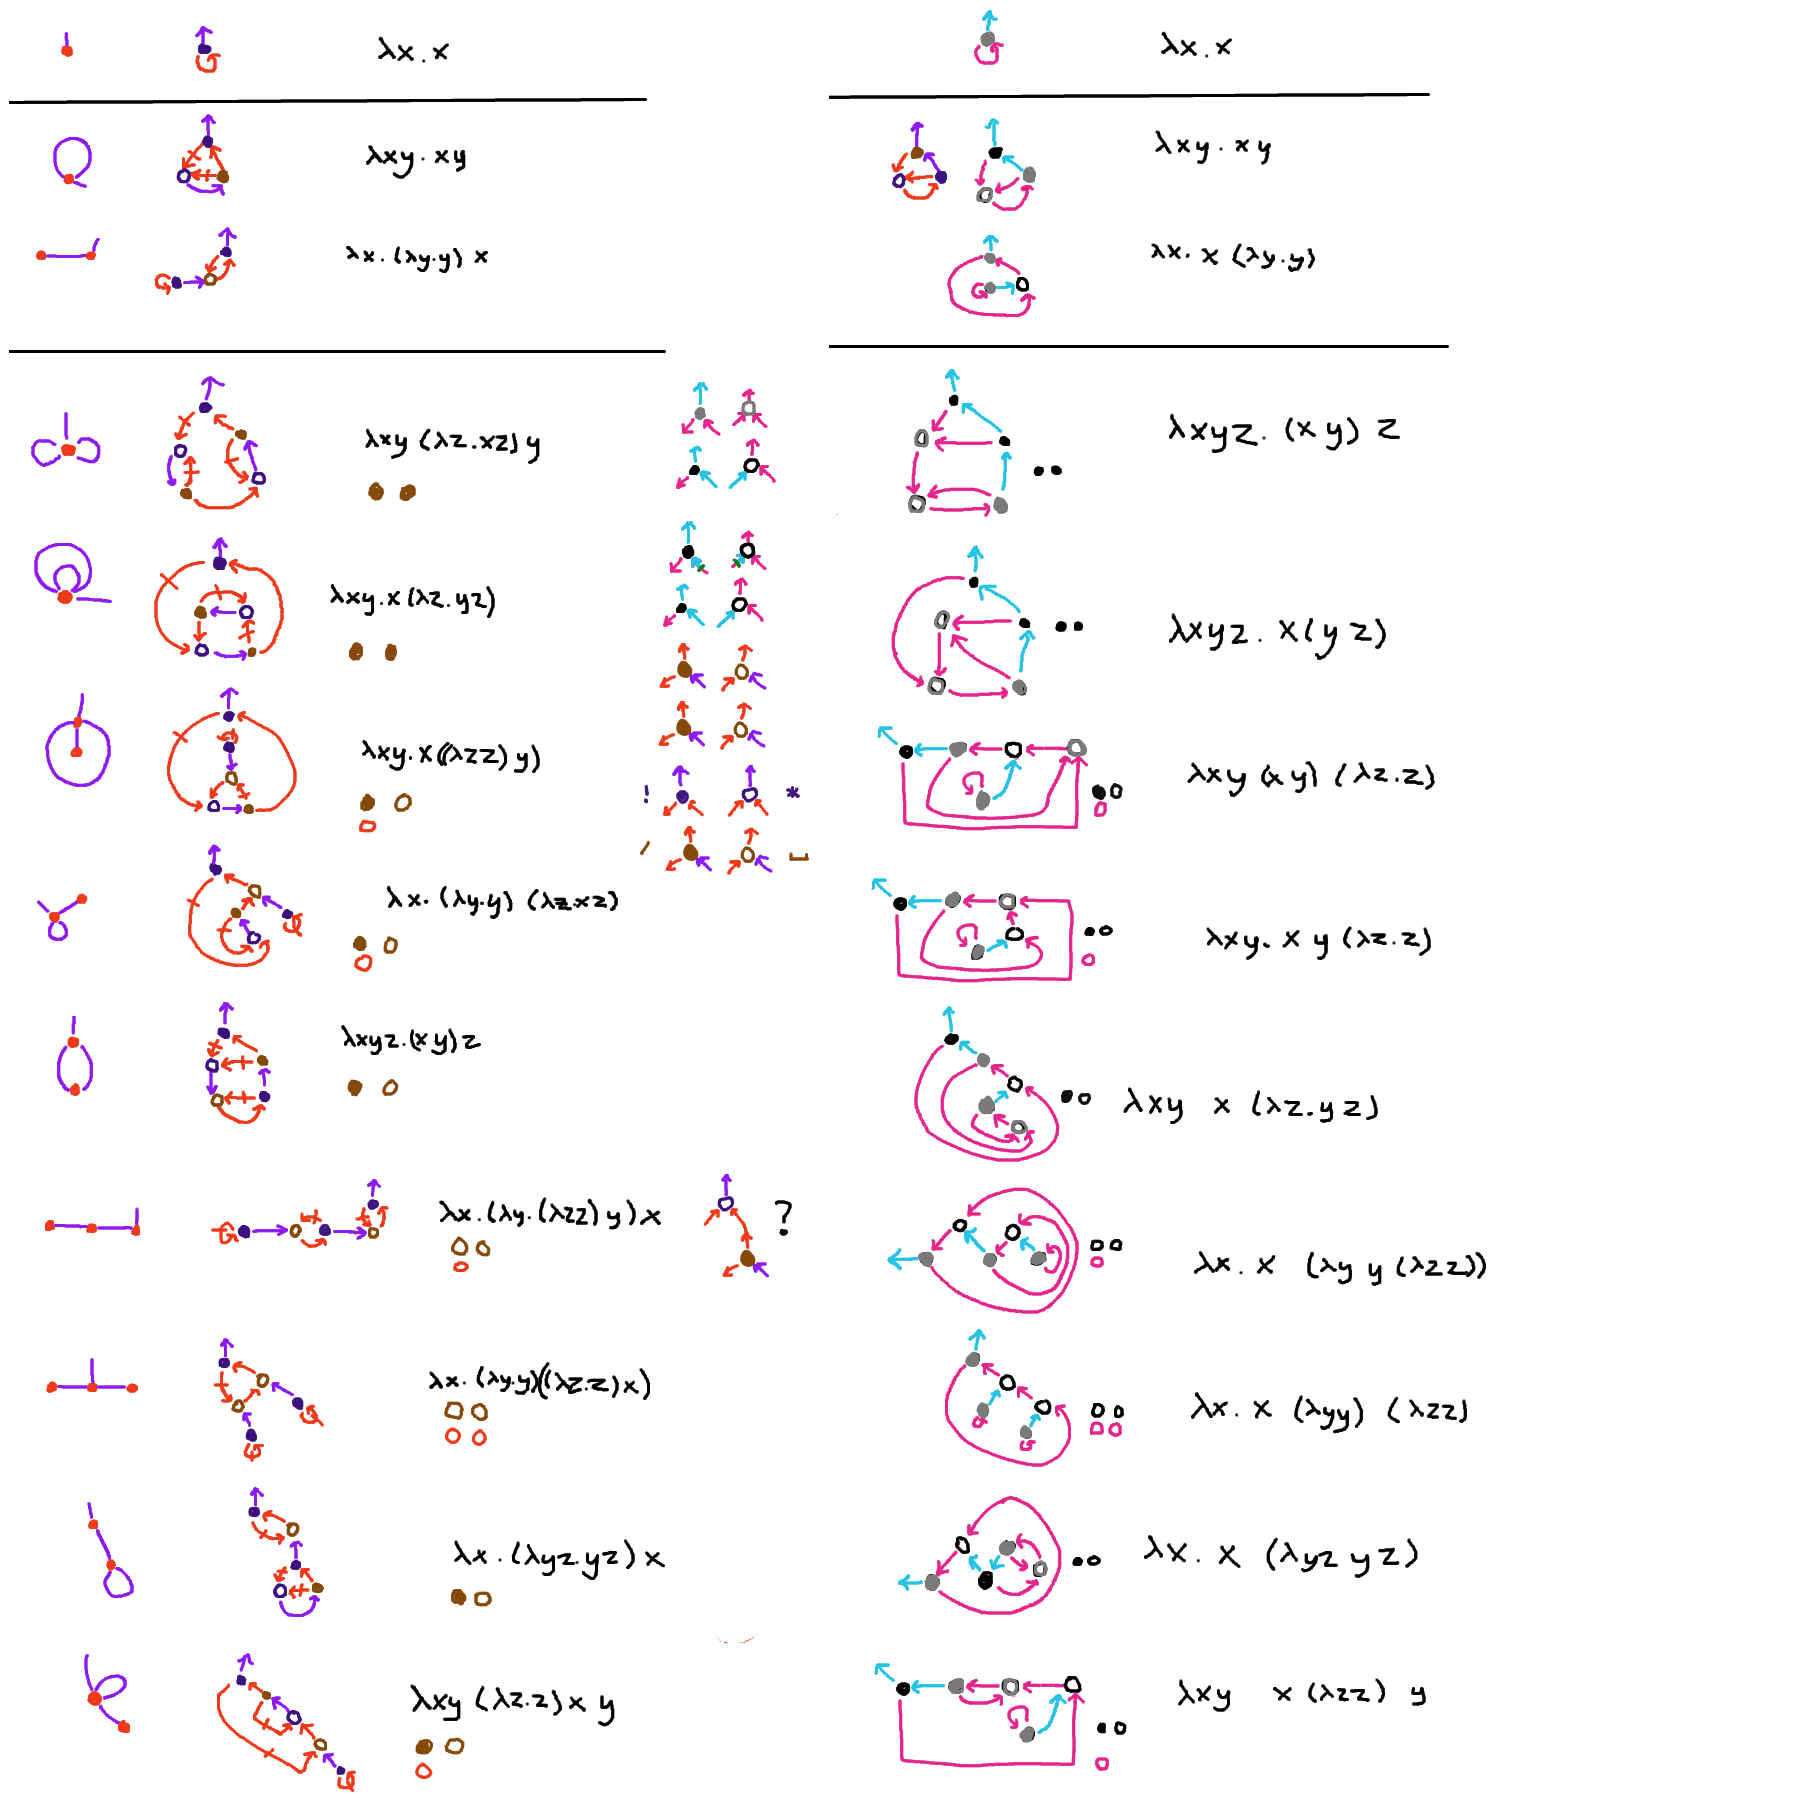 λx.x
λxy.xy
λx.(λy.y) x
λxy (λz.xz) y
λxy.x(λz.yz)
λxy.x((λzz) y)
λx.(λy.y) (λz.xz)
λxyz.(xy)z
λx.(λy.(λzz) y) x
?
λx.(λy.y)((λz.z)x)
λx.(λyz.yz) x
λxy (λz.z) x y
! *
λx.x
λxy.xy
λx.x (λy.y)
λxyz.(xy) z
λxyz.x(yz)
λxy (xy) (λz.z)
λxy.x y (λz.z)
λxy x (λz.yz)
λx.x (λy y (λzz))
λx.x (λyy) (λzz)
λx.x (λyz yz)
λxy x (λzz) y